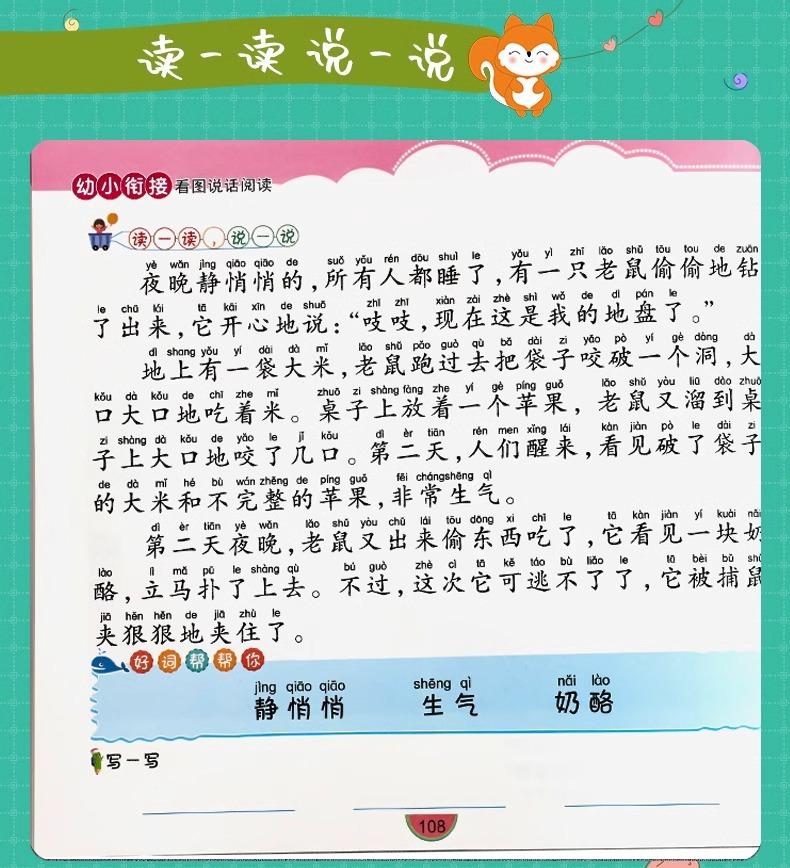 读一读 说一说
幼小衔接 看图说话阅读
读一读,说一说
yè wǎn jìng qiāo qiāo de suǒ yǒu rén dōu shuì le yǒu yì zhī lǎo shǔ tōu tou de zuān
夜晚静悄悄的,所有人都睡了,有一只老鼠偷偷地钻
le chū lái tā kāi xīn de shuō zhī zhī xiàn zài zhè shì wǒ de dì pán le
了出来,它开心地说:“吱吱,现在这是我的地盘了。”
dì shang yǒu yí dài dà mǐ lǎo shǔ pǎo guò qù bǎ dài zi yǎo pò yí gè dòng dà
地上有一袋大米,老鼠跑过去把袋子咬破一个洞,大
kǒu dà kǒu de chī zhe mǐ zhuō zi shàng fàng zhe yí gè píng guǒ lǎo shǔ yòu liū dào zhuō
口大口地吃着米。桌子上放着一个苹果,老鼠又溜到桌
zi shàng dà kǒu de yǎo le jǐ kǒu dì èr tiān rén men xǐng lái kàn jiàn pò le dài zi
子上大口地咬了几口。第二天,人们醒来,看见破了袋子
de dà mǐ hé bù wán zhěng de píng guǒ fēi cháng shēng qì
的大米和不完整的苹果,非常生气。
dì èr tiān yè wǎn lǎo shǔ yòu chū lái tōu dōng xi chī le tā kàn jiàn yí kuài nǎi
第二天夜晚,老鼠又出来偷东西吃了,它看见一块奶
lào lì mǎ pū le shàng qù bú guò zhè cì tā kě táo bù liǎo le tā bèi bǔ shǔ
酪,立马扑了上去。不过,这次它可逃不了了,它被捕鼠
jiā hěn hěn de jiā zhù le
夹狠狠地夹住了。
好词帮帮你
jìng qiāo qiāo shēng qì nǎi lào
静悄悄 生气 奶酪
写一写
108